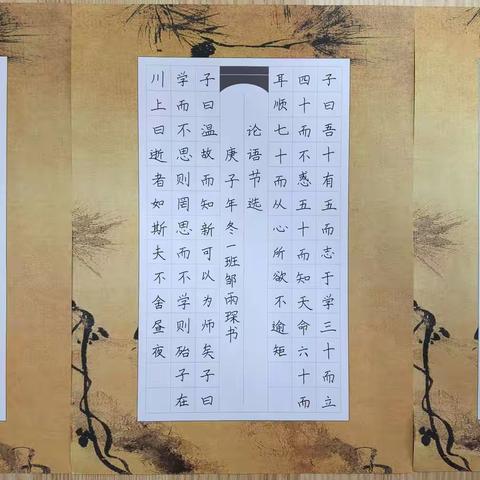 子曰吾十有五而志于学三十而立
四十而不惑五十而知天命六十而
耳顺七十而从心所欲不逾矩
论语节选
庚子年冬一班邹雨琛书
子曰温故而知新可以为师矣子曰
学而不思则罔思而不学则殆子在
川上曰逝者如斯夫不舍昼夜